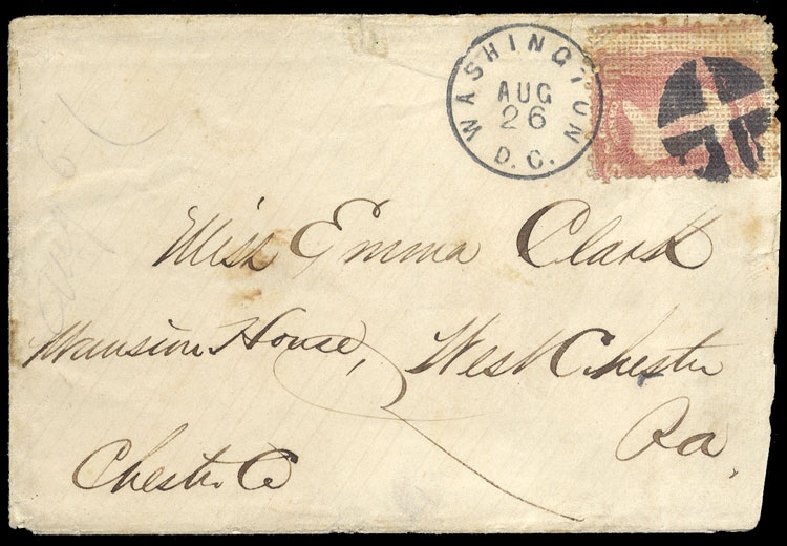 WASHINGTON
AUG
26
D. C.
Miss Emma Clark
Mansion House, West Chester
Pa,
Chester Co